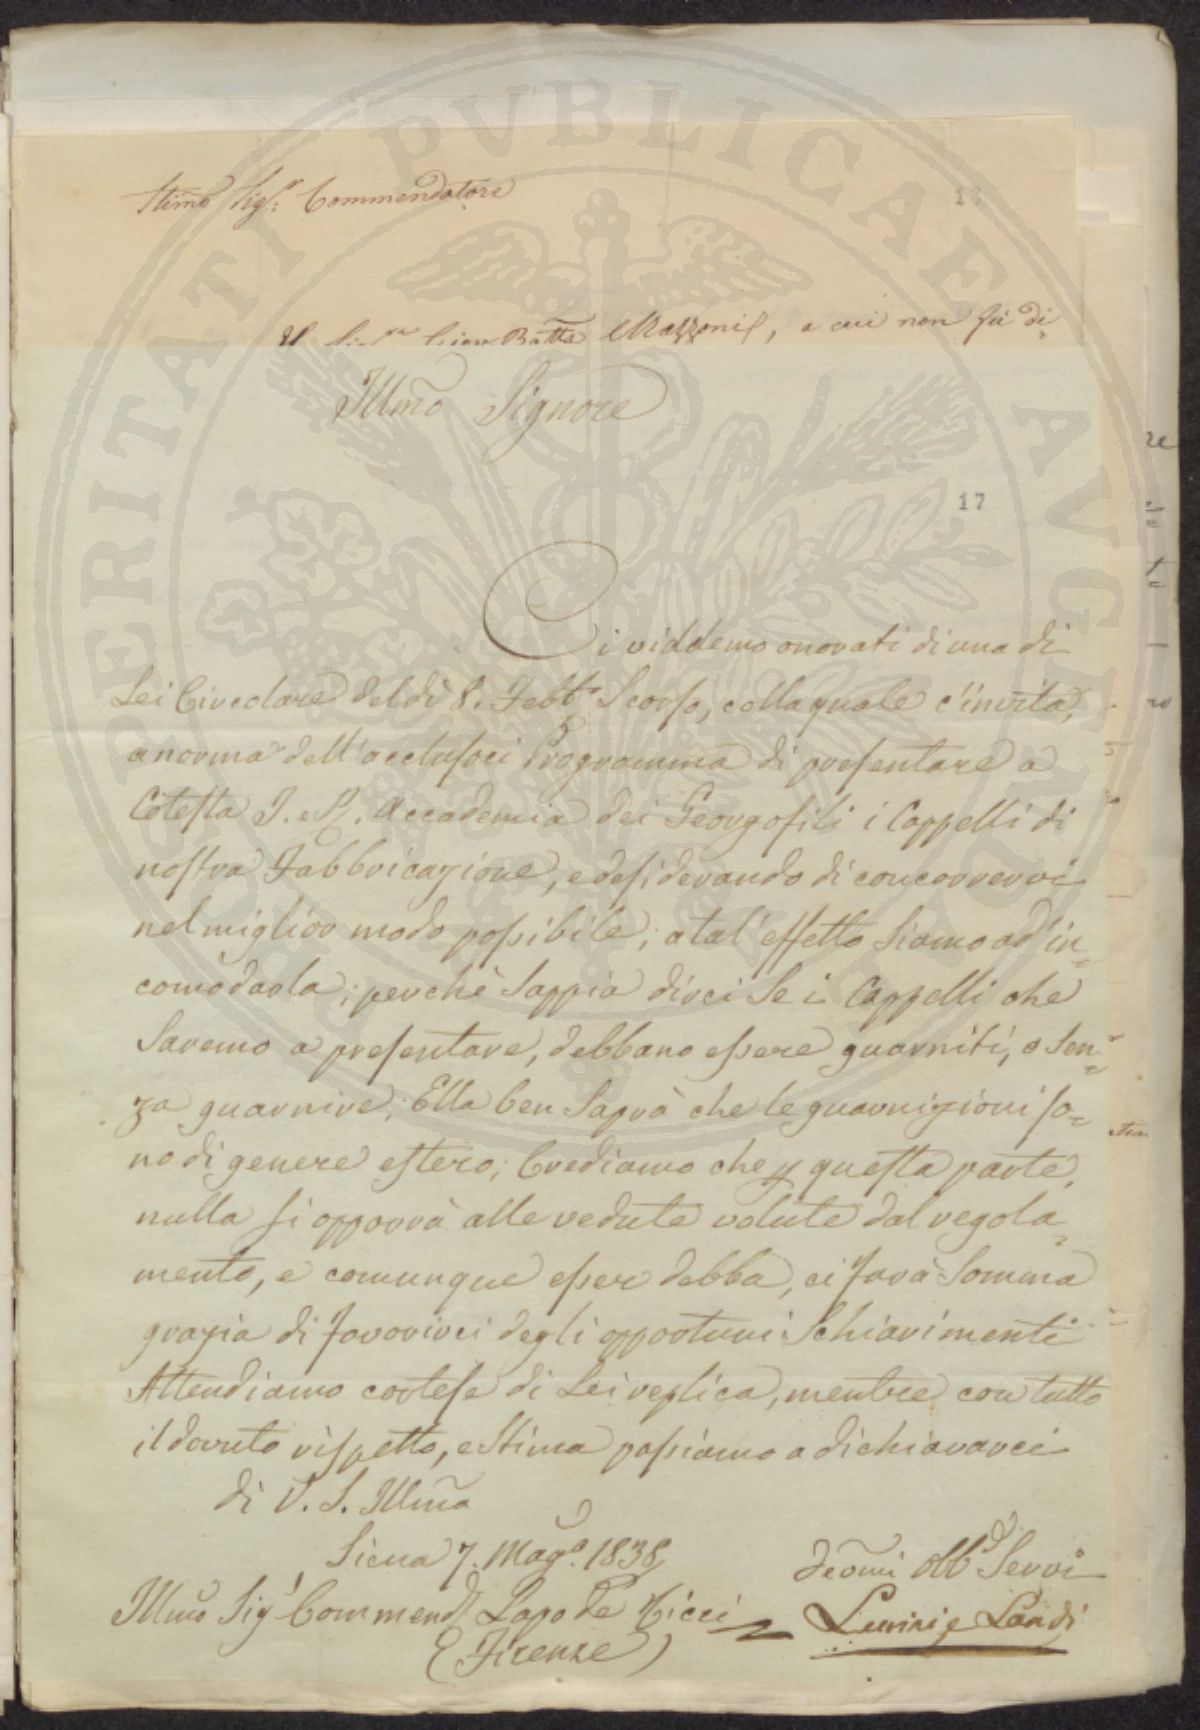 Stimo Sigr: Commendatore
16
Il Sigre Gion Batta Mazzoni, a cui non fù di-
Illmo Signore
17
Ci viddemo onorati di una di
Lei Circolare del dì 8. Febbo Scorso, colla quale c'invita,
a norma dell'acclusoci Programma di presentare a
Cotesta I. e R. Accademia dei Georgofili i Cappelli di
nostra Fabbricazione, e desiderando di concorrervi
nel miglior modo possibile; a tal'effetto Siamo ad in=
comodarla; perchè Sappia dirci Se i Cappelli che
Saremo a presentare, debbano essere guarniti, o Sen=
za guarnire; Ella ben Saprà che le guarnizioni so=
no di genere estero; Crediamo che p questa parte,
nulla si opporrà alle vedute volute dal regola=
mento, e comunque esser debba, ci farà Somma
grazia di favorirci degli opportuni Schiarimenti
Attendiamo cortese di Lei replica, mentre con tutto
il dovuto rispetto, e Stima passiamo a dichiararci
di V. S. Illma
Siena 7. Mago. 1838
Devmi Obbd Servi
Illmo Sigr Commendr Lapo de Ricci
Lunini e Landi
(Firenze)
PROSPERITATI PVBLICAE AVGENDAE